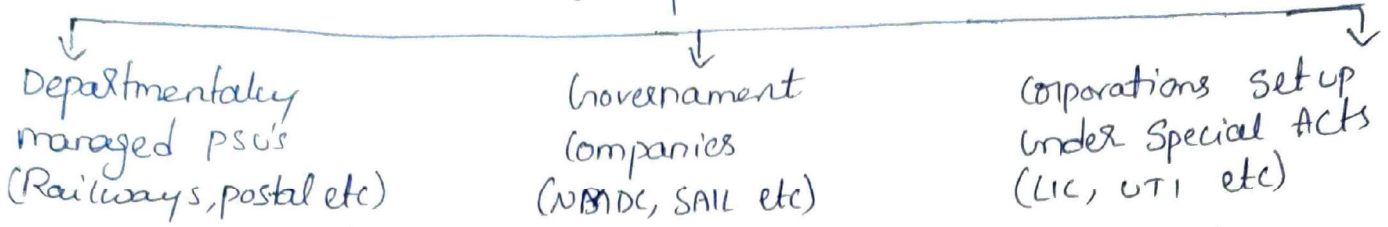 Departmentaley
managed PSU's
(Railways, postal etc)
Governament
Companies
(NMDC, SAIL etc)
Corporations Set up
under Special Acts
(LIC, UTI etc)